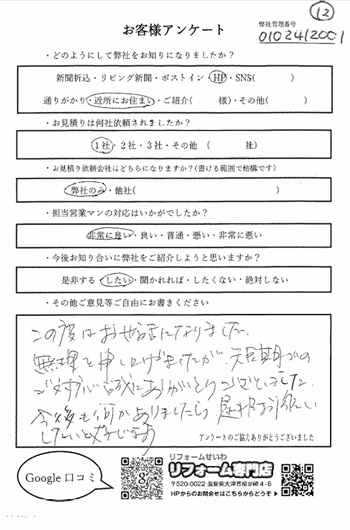 ⑫
お客様アンケート
弊社管理番号
0102412001
・どのようにして弊社をお知りになりましたか?
新聞折込・リビング新聞・ポストイン・HP・SNS( )
通りがかり・近所にお住まい・ご紹介( 様)・その他( )
・お見積りは何社依頼されましたか?
1社・2社・3社・その他 ( 社)
・お見積り依頼会社はどちらになりますか?(書ける範囲で結構です)
弊社のみ・他社( )
・担当営業マンの対応はいかがでしたか?
非常に良い・良い・普通・悪い・非常に悪い
・今後お知り合いに弊社をご紹介しようと思いますか?
是非する・したい・聞かれれば・したくない・絶対しない
・その他ご意見等ご自由にお書きください
この度はお世話になりました。
無理を申し上げましたが、短期での
ご対応 誠にありがとうございました
今後も何かありましたら 是非お願い
したいと思います
アンケートのご協力ありがとうございました
Google 口コミ
リフォームせいわ
リフォーム専門店
〒520-0022 滋賀県大津市柳が崎4-6
HPからのお問合せはこちらからどうぞ